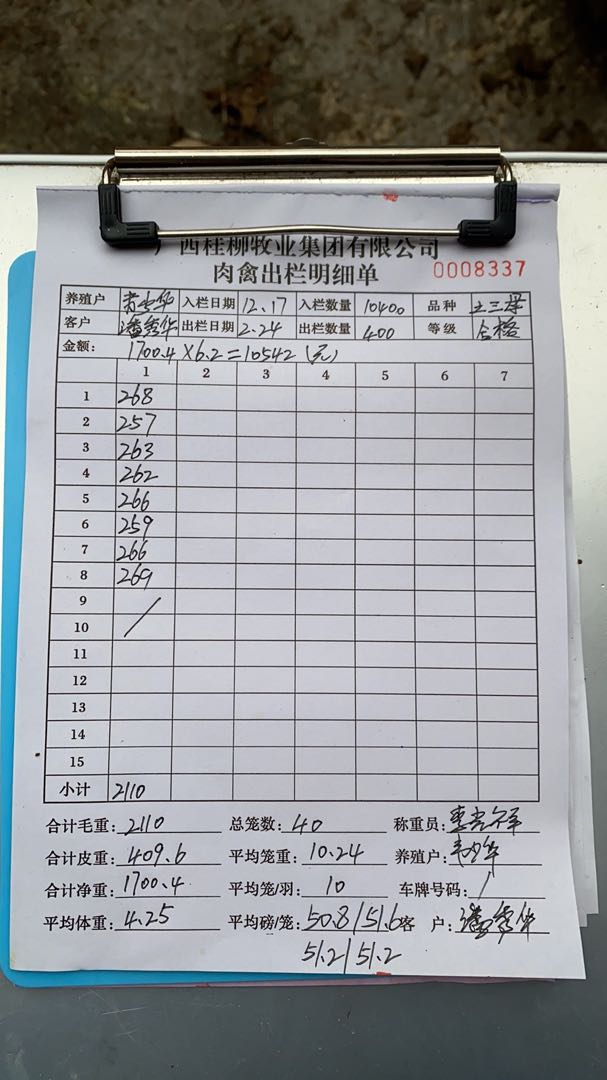 西桂柳牧业集团有限公司
肉禽出栏明细单 0008337
养殖户 入栏日期 12.17 入栏数量 10400 品种 土三
客户 潘秀华 出栏日期 2.24 出栏数量 400 等级 合格
金额: 1700.4×6.2=10542(元)
1 2 3 4 5 6 7
1 268
2 257
3 263
4 262
5 266
6 259
7 266
8 269
9
10
11
12
13
14
15
小计 2110
合计毛重: 2110 总笼数: 40 称重员:
合计皮重: 409.6 平均笼重: 10.24 养殖户:
合计净重: 1700.4 平均笼/羽: 10 车牌号码: /
平均体重: 4.25 平均磅/笼: 50.8/51.6 客 户: 潘秀华
51.2/51.2